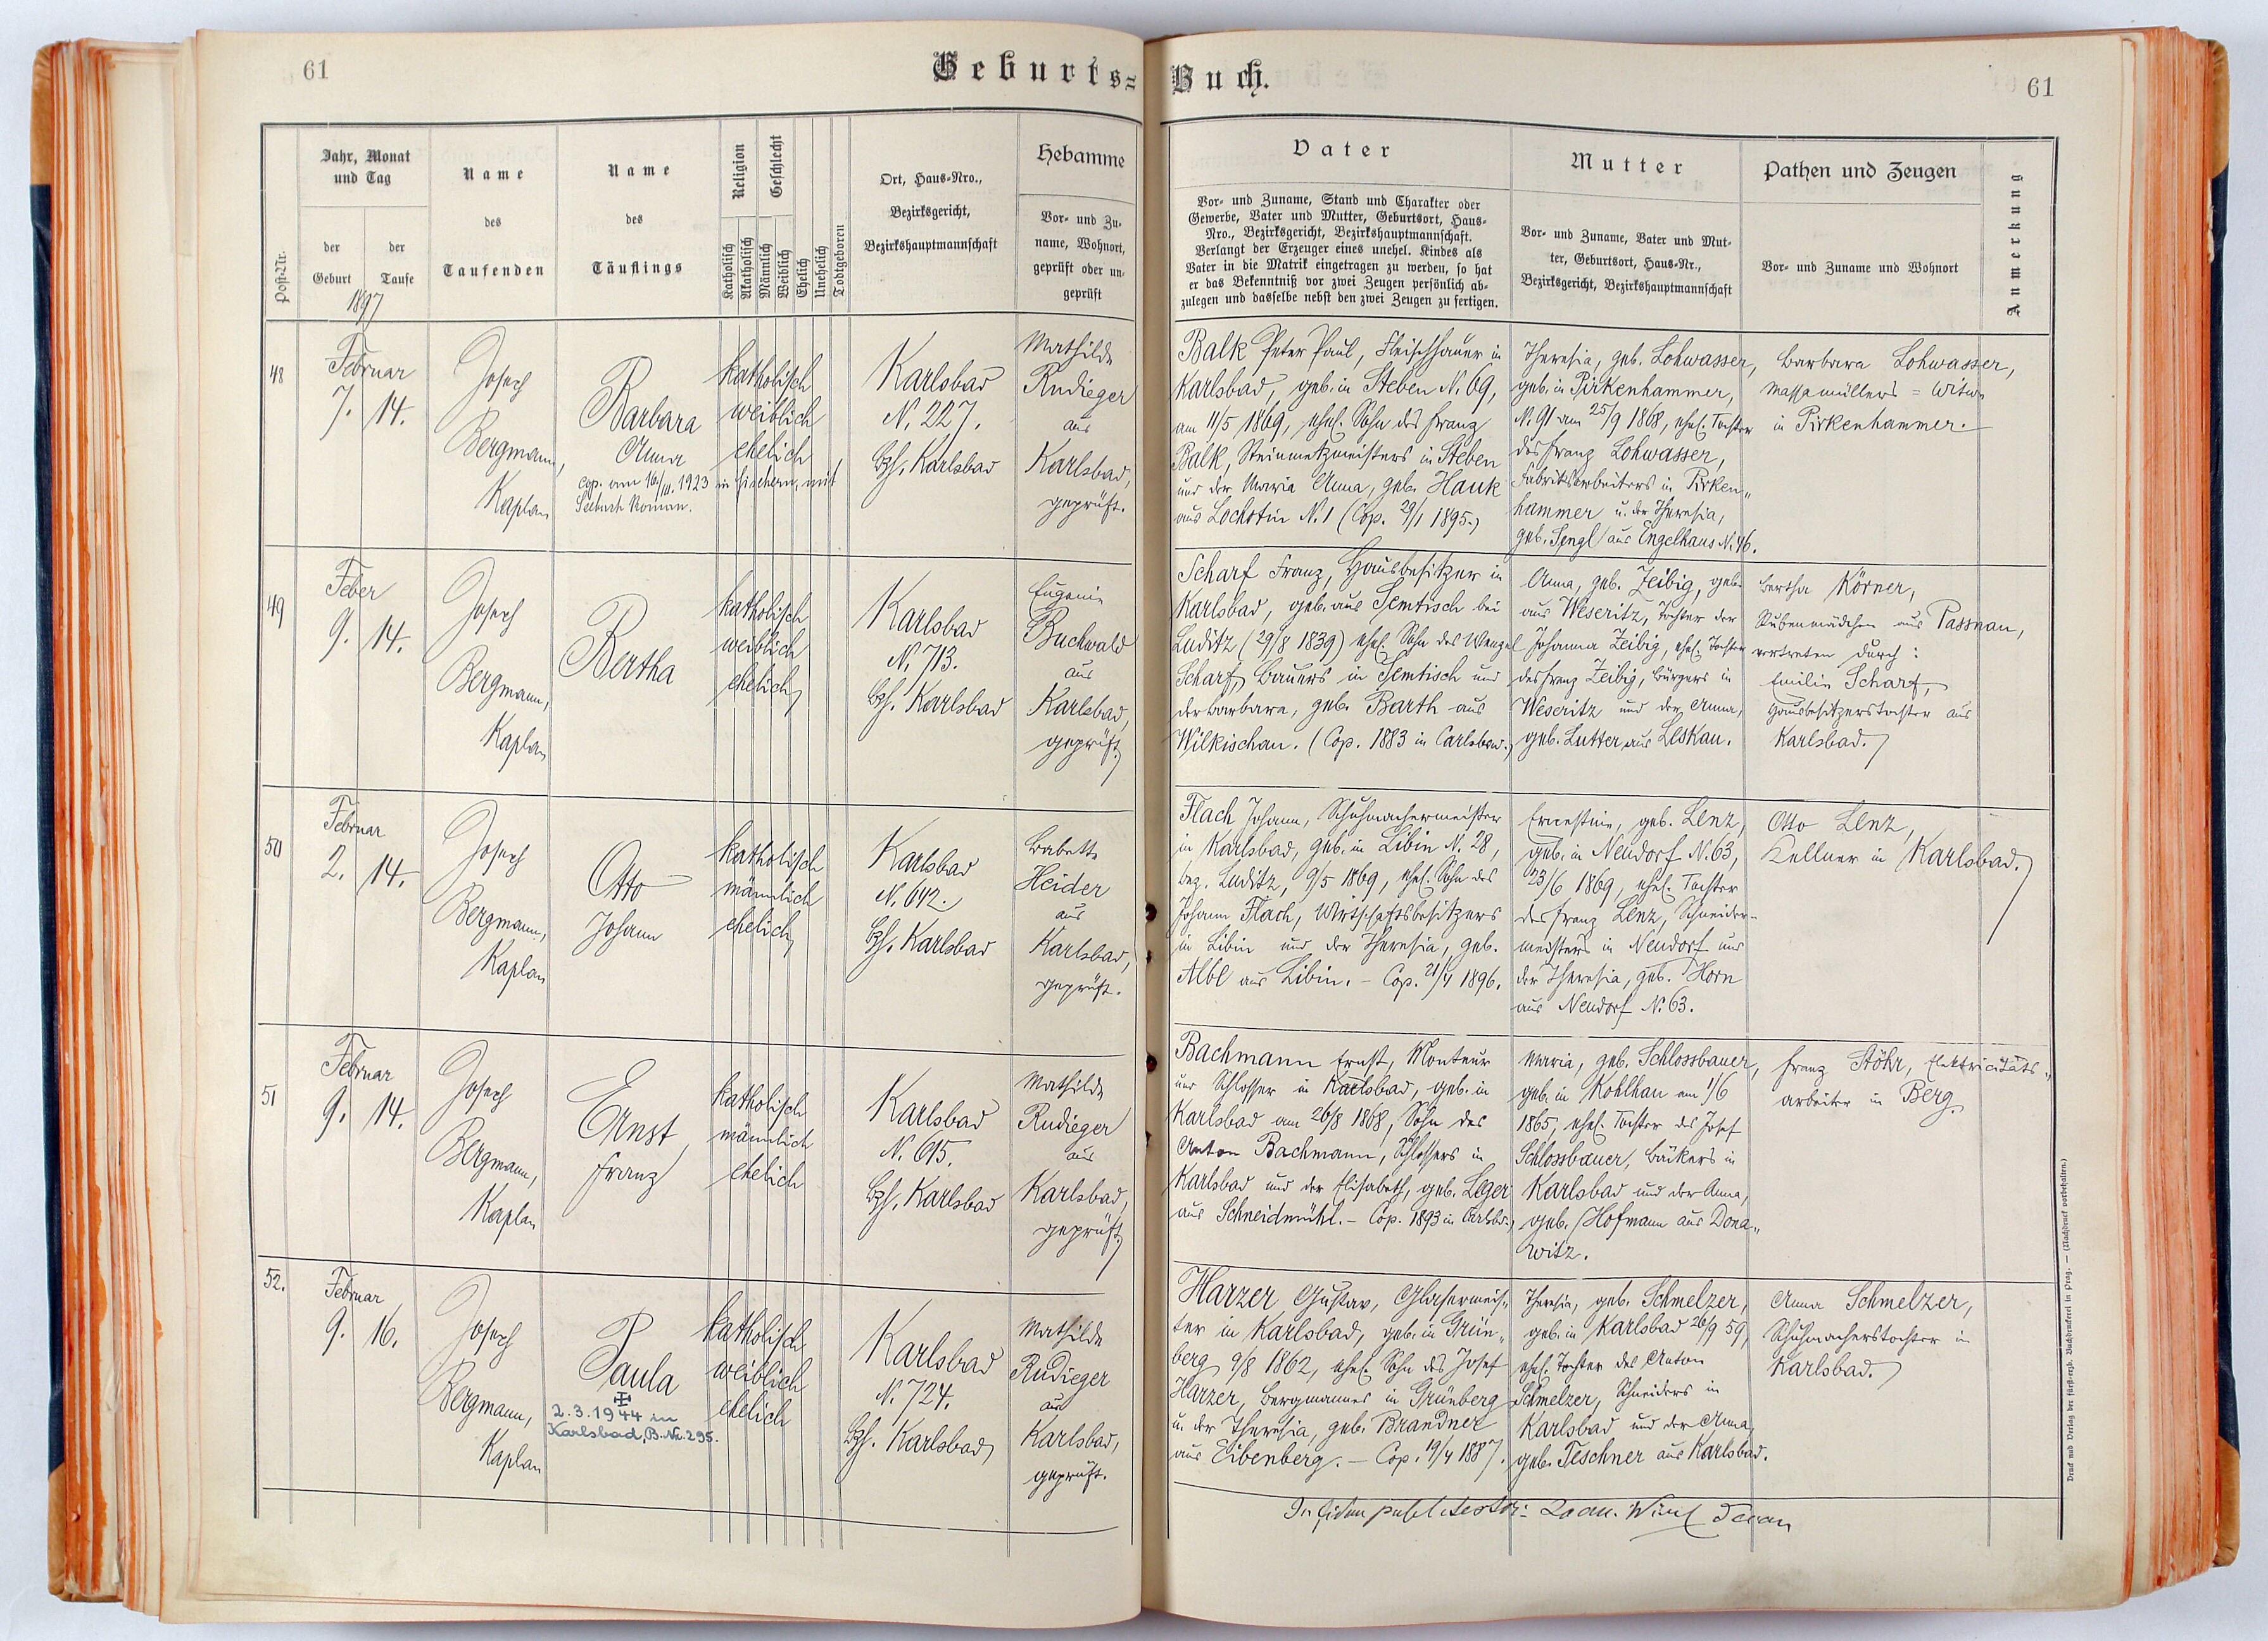 61
Geburts=
Jahr, Monat
und Tag
Name
Name
Religion
Geschlecht
Ort, Haus=Nro.,
Bezirksgericht,
Bezirkshauptmannschaft
Hebamme
Post-Nr.
der
Geburt
der
Taufe
des
Taufenden
des
Täuflings
Katholisch
Akatholisch
Männlich
Weiblich
Ehelich
Unehelich
Todtgeboren
Vor- und Zu-
name, Wohnort,
geprüft oder un-
geprüft
1897
48
Februar
7. 14.
Joseph
Bergmann,
Kaplan
Barbara
Anna
cop. am 16/III. 1923 in Fischern, mit
Roman.
katholisch
weiblich
ehelich
Karlsbad
N. 227.
Bzh. Karlsbad
Mathilde
Rudieger
aus
Karlsbad,
geprüft.
49
Feber
9. 14.
Joseph
Bergmann,
Kaplan
Bertha
katholisch
weiblich
ehelich
Karlsbad
N. 713.
Bzh. Karlsbad
Eugenie
Buchwald
aus
Karlsbad,
geprüft.
50
Februar
2. 14.
Joseph
Bergmann,
Kaplan
Otto
Johann
katholisch
männlich
ehelich
Karlsbad
N. 642.
Bzh. Karlsbad
Babette
Heider
aus
Karlsbad,
geprüft.
51
Februar
9. 14.
Joseph
Bergmann,
Kaplan
Ernst,
Franz
katholisch
männlich
ehelich
Karlsbad
N. 615.
Bzh. Karlsbad
Mathilde
Rudieger
aus
Karlsbad,
geprüft.
52.
Februar
9. 16.
Joseph
Bergmann,
Kaplan
Paula
2.3.1944 in
Karlsbad, B.-Nr. 295.
katholisch
weiblich
ehelich
Karlsbad
N. 724.
Bzh. Karlsbad
Mathilde
Rudieger
aus
Karlsbad,
geprüft.
Buch.
61
Vater
Mutter
Pathen und Zeugen
Anmerkung
Vor- und Zuname, Stand und Charakter oder
Gewerbe, Vater und Mutter, Geburtsort, Haus-
Nro., Bezirksgericht, Bezirkshauptmannschaft.
Verlangt der Erzeuger eines unehel. Kindes als
Vater in die Matrik eingetragen zu werden, so hat
er das Bekenntniß vor zwei Zeugen persönlich ab-
zulegen und dasselbe nebst den zwei Zeugen zu fertigen.
Vor- und Zuname, Vater und Mut-
ter, Geburtsort, Haus-Nr.,
Bezirksgericht, Bezirkshauptmannschaft
Vor- und Zuname und Wohnort
Balk Peter Paul, Fleischhauer in
Karlsbad, geb. in Steben N. 69,
am 11/5 1869, ehel. Sohn des Franz
Balk, Steinmetzmeisters in Steben
und der Maria Anna, geb. Hauk
aus Lochotin N. 1 (Cop. 29/1 1895.)
Theresia, geb. Lohwasser,
geb. in Pirkenhammer,
N. 91 am 25/9 1868, ehel. Tochter
des Franz Lohwasser,
Fabriksarbeiters in Pirken„
hammer u. der Theresia,
geb. Sengl aus Engelhaus N. 46.
Barbara Lohwasser,
Massamüllers = Witwe
in Pirkenhammer.
Scharf Franz, Hausbesitzer in
Karlsbad, geb. aus Semtisch bei
Luditz (29/8 1839) ehel. Sohn des Wenzel
Scharf, Bauers in Semtisch und
der Barbara, geb. Barth aus
Wilkischau. (Cop. 1883 in Carlsbad.)
Anna, geb. Zeibig, geb.
aus Weseritz, Tochter der
Johanna Zeibig, ehel. Tochter
des Franz Zeibig, Bürgers in
Weseritz und der Anna,
geb. Lutter aus Leskau.
Bertha Körner,
Stubenmädchen aus Passnau,
vertreten durch:
Emilie Scharf,
Hausbesitzerstochter aus
Karlsbad.
Flach Johann, Schuhmachermeister
in Karlsbad, geb. in Libin N. 28,
bez. Luditz, 9/5 1869, ehel. Sohn des
Johann Flach, Wirtschaftsbesitzers
in Libin und der Theresia, geb.
Albl aus Libin. – Cop. 21/4 1896.
Ernestine, geb. Lenz,
geb. in Neudorf N. 63,
23/6 1869, ehel. Tochter
des Franz Lenz, Schneider-
meisters in Neudorf und
der Theresia, geb. Horn
aus Neudorf N. 63.
Otto Lenz,
Kellner in Karlsbad.
Bachmann Ernst, Monteur
und Schlosser in Karlsbad, geb. in
Karlsbad am 26/8 1868, Sohn des
Anton Bachmann, Schlossers in
Karlsbad und der Elisabeth, geb. Leger
aus Schneidmühl. – Cop. 1893 in Carlsbd.,
Maria, geb. Schlossbauer,
geb. in Kohlhau am 1/6
1865, ehel. Tochter des Josef
Schlossbauer, Bäckers in
Karlsbad und der Anna,
geb. Hofmann aus Dona„
witz.
Franz Stöhr, Elektricitäts„
arbeiter in Berg.
Harzer Gustav, Glasermeis„
ter in Karlsbad, geb. in Grün„
berg 9/8 1862, ehel. Sohn des Josef
Harzer, Bergmannes in Grünberg
u. der Theresia, geb. Brandner
aus Eibenberg. – Cop. 19/4 1887.
Theresia, geb. Schmelzer,
geb. in Karlsbad 26/9 59,
ehel. Tochter des Anton
Schmelzer, Schneiders in
Karlsbad und der Anna,
geb. Teschner aus Karlsbad.
Anna Schmelzer,
Schuhmacherstochter in
Karlsbad.
In fidem publ. testor:
Druck und Verlag der fürst-erzb. Buchdruckerei in Prag. — (Nachdruck vorbehalten.)